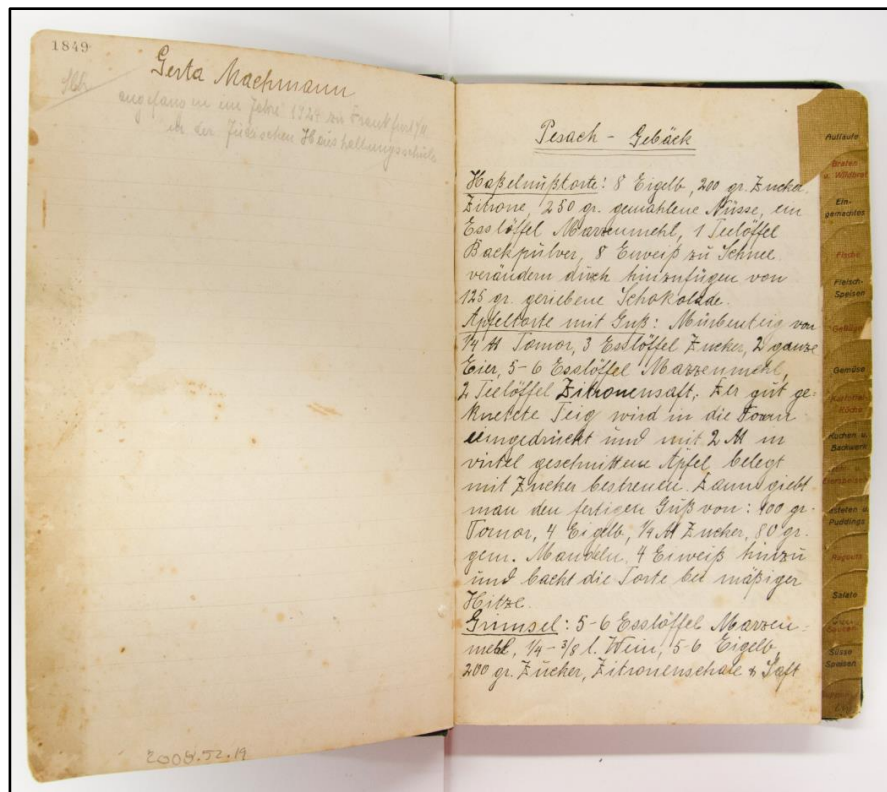 1849
Gerta Machmann
angefangen im Jahre 1924 zu Frankfurt
in der Jüdischen Haushaltungsschule
2005.52.19
Pesach - Gebäck
Haßelnußtorte: 8 Eigelb, 200 gr. Zucker
Zitrone, 250 gr. gemahlene Nüsse, ein
Esslöffel Mazzenmehl, 1 Teelöffel
Backpulver, 8 Eiweiß zu Schnee
verändern durch hinzufügen von
125 gr. geriebene Schokolade.
Apfeltorte mit Guß: Mürbenteig von
1/4 ℔ Tomor, 3 Esslöffel Zucker, 2 ganze
Eier, 5-6 Esslöffel Mazzenmehl,
2 Teelöffel Zitronensaft, Der gut ge-
knetete Teig wird in die Form
eingedrückt und mit 2 ℔ in
virtel geschnittene Äpfel belegt
mit Zucker bestreuen. Dann giebt
man den fertigen Guß von: 100 gr.
Tomor, 4 Eigelb, 1/4 ℔ Zucker, 80 gr.
gem. Mandeln, 4 Eiweiß hinzu
und backt die Torte bei mäßiger
Hitze.
Grimsel: 5-6 Esslöffel Mazzen-
mehl, 1/4 - 3/8 l. Wein, 5-6 Eigelb,
200 gr. Zucker, Zitronenschale & Saft
Aufläufe
Braten
u. Wildbret
Ein-
gemachtes
Fische
Fleisch-
Speisen
Geflügel
Gemüse
Kartoffel-
Küche
Kuchen u.
Backwerk
Pasteten u.
Puddings
Ragouts
Salate
Saucen
Süsse
Speisen